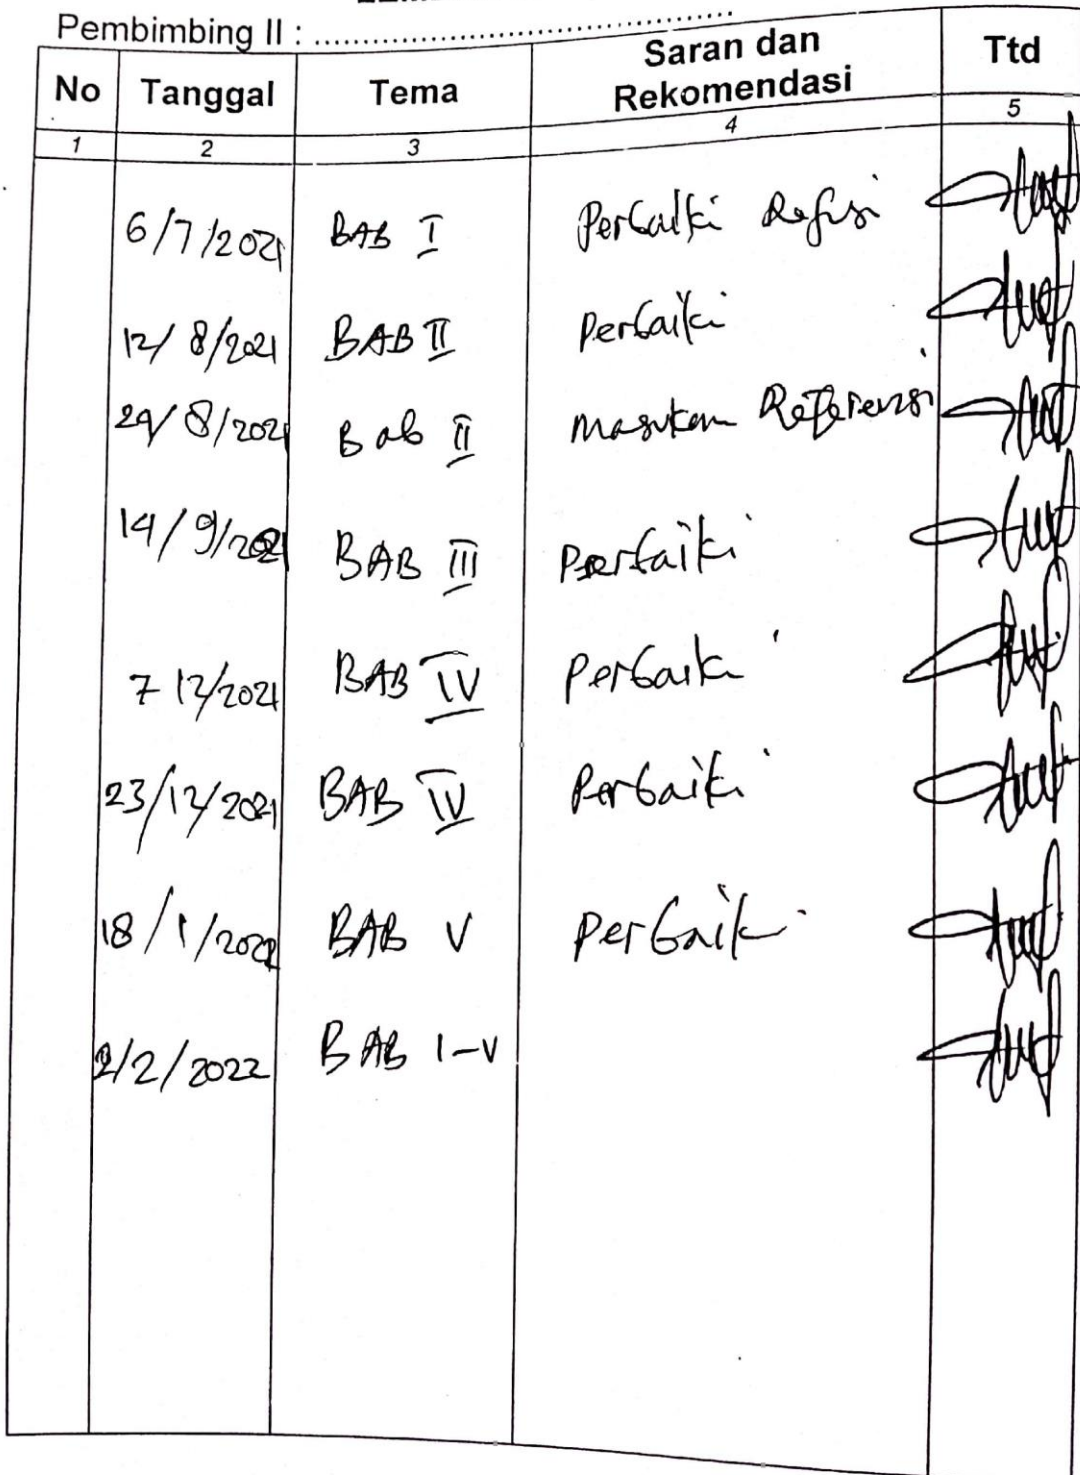 Pembimbing II : ............................................
No Tanggal Tema Saran dan Rekomendasi Ttd
1 2 3 4 5
6/7/2021 BAB I Perbaiki Refisi
12/8/2021 BAB II Perbaiki
29/8/2021 Bab II Masukan Referensi
14/9/2021 BAB III Perbaiki
7 12/2021 BAB IV Perbaiki
23/12/2021 BAB IV Perbaiki
18/1/2022 BAB V Perbaiki
2/2/2022 BAB I-V